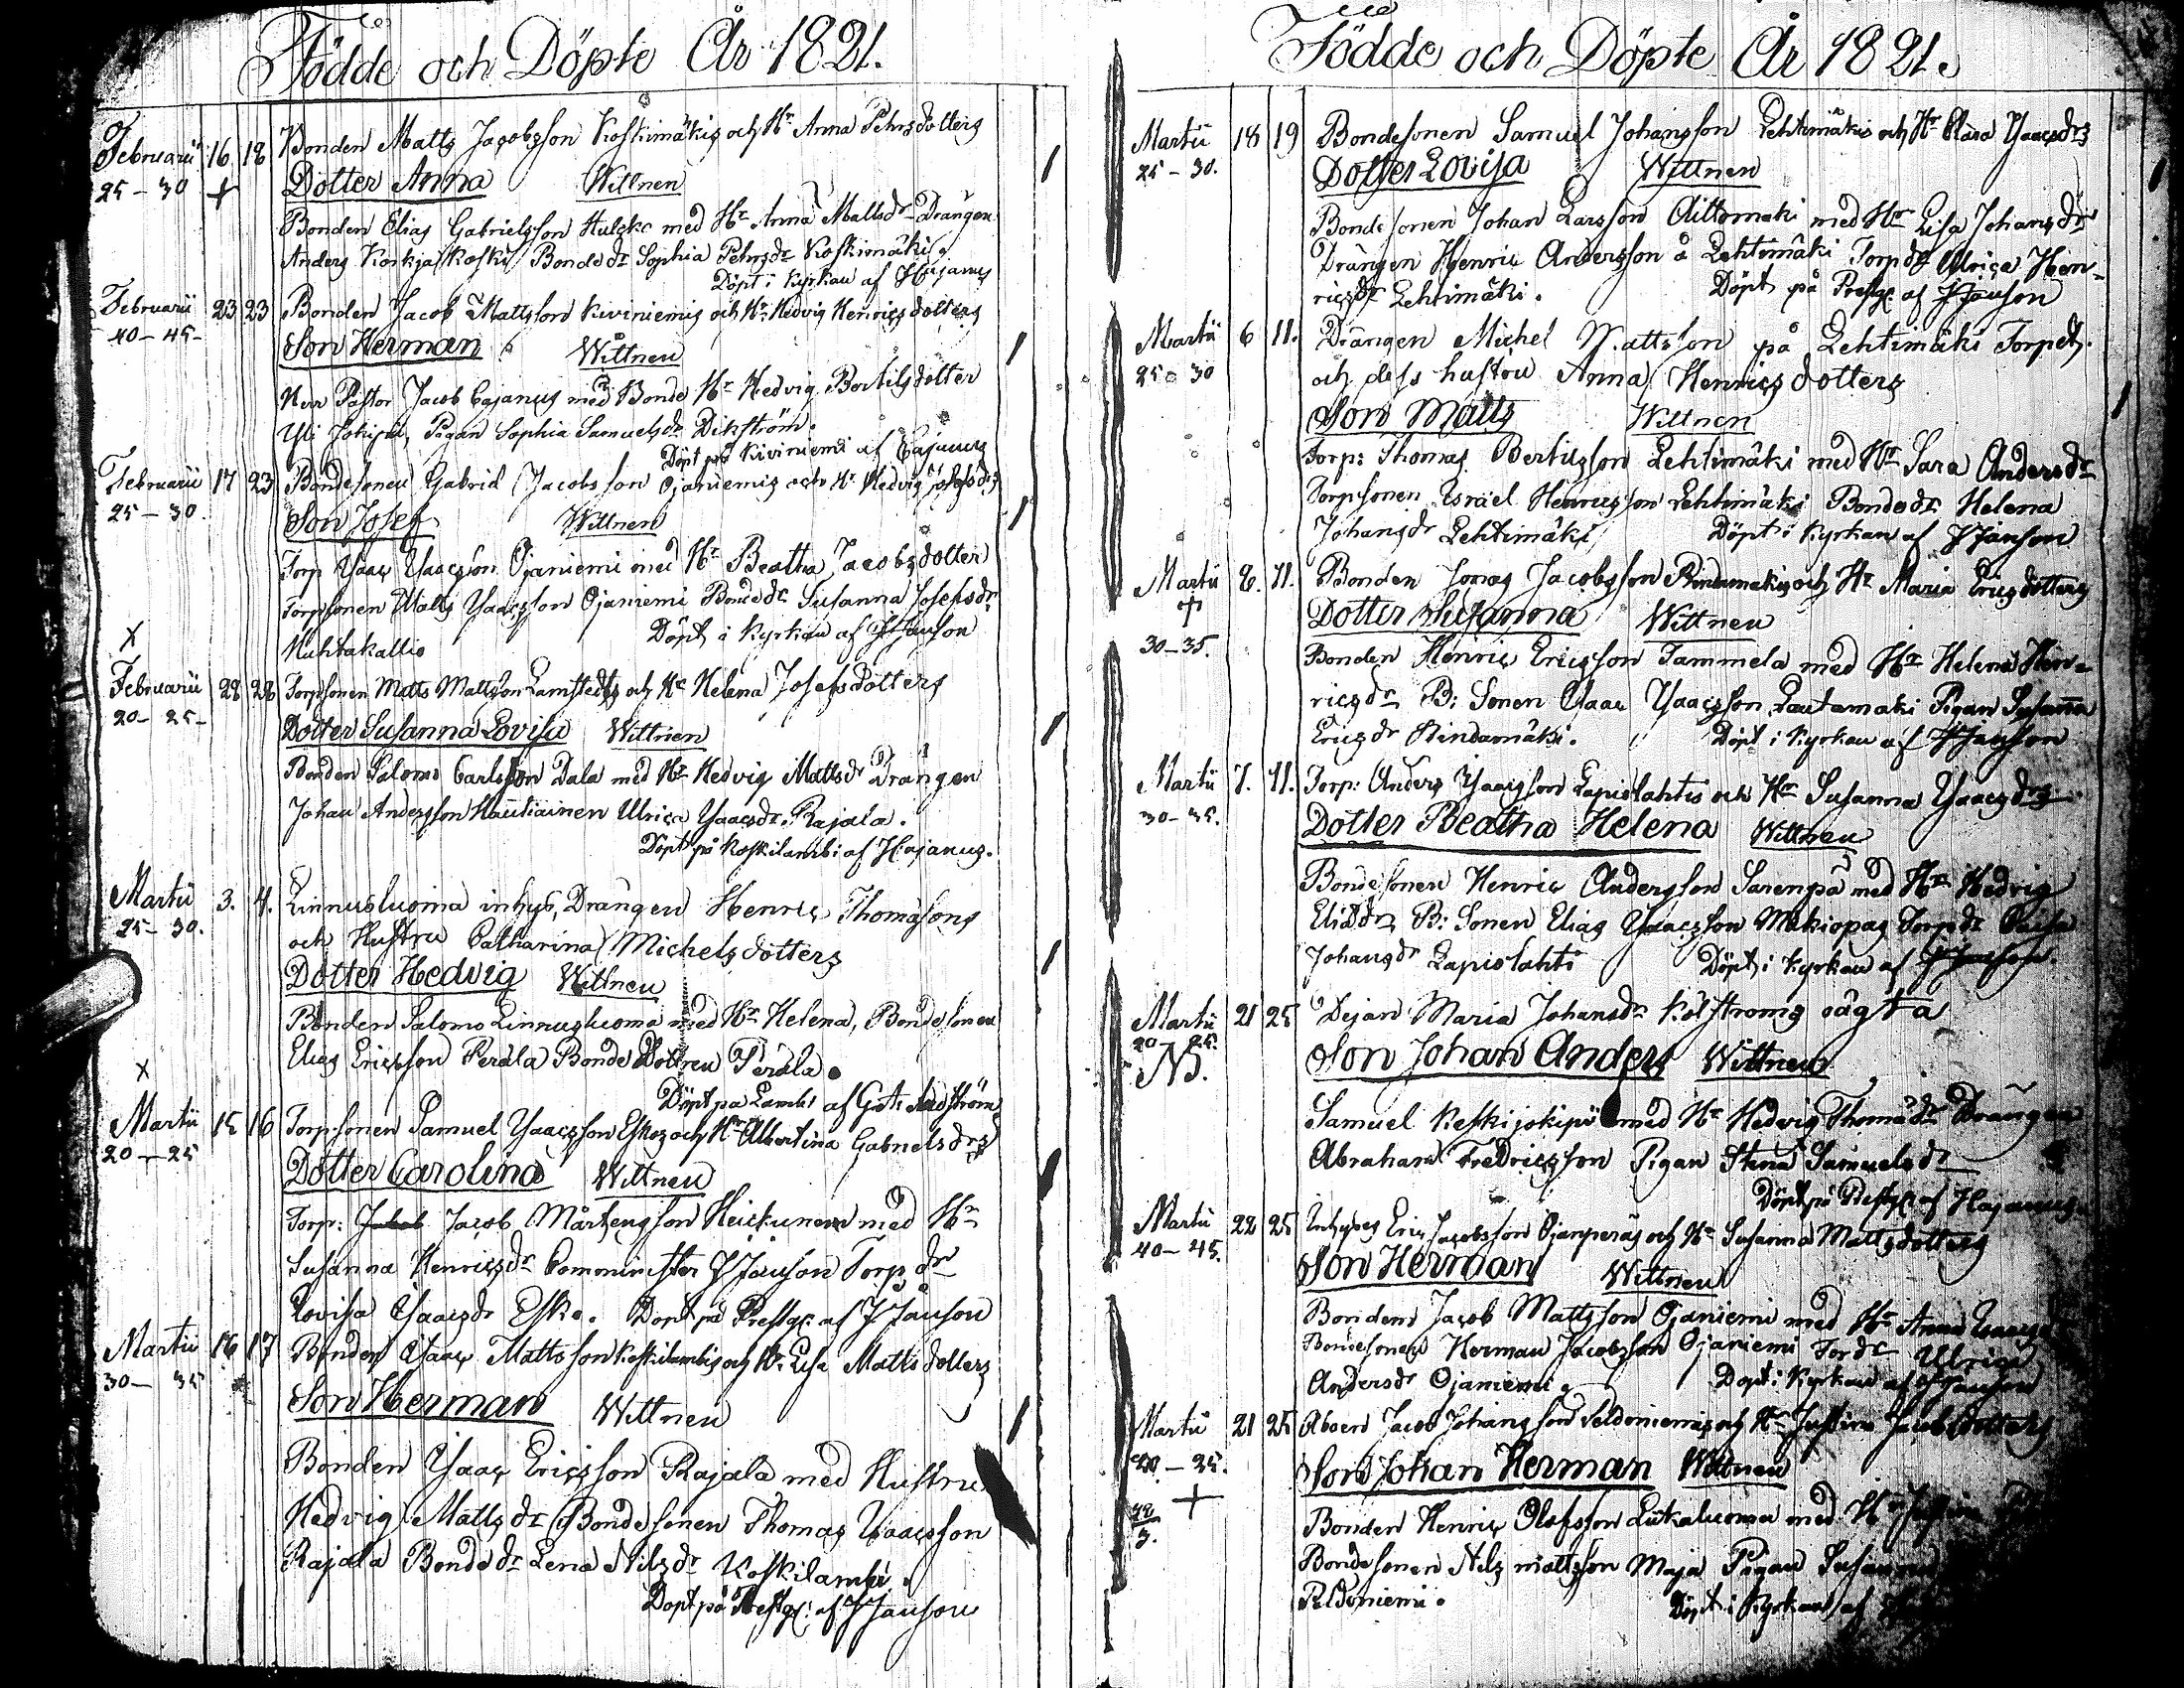 Födde och Döpte År 1821.
Februarii 16 18 Bonden Matts Jacobsson Koskimäkis och Hr Anna Pehrsdotters
25-30 + Dotter Anna Wittnen
Bonden Elias Gabrielsson med Hr Anna Mattsdr Drängen
Anders Koskimäki Bondedr Sophia Pehrsdr Koskimäki.
Döpt i Kyrkan af
Februarii 23 23 Bonden Jacob Mattsson Kiviniemis och Hr Hedvig Henricsdotters
40-45- Son Herman Wittnen
Herr Pastor Jacob Cajanus med Bonde Hr Hedvig Bertilsdotter
Yli Jokipii, Pigan Sophia Samuelsdr Dikström.
Döpt på Kiviniemi af Cajanus
Februarii 17 23 Bondesonen Gabriel Jacobsson Ojaniemis och Hr Hedvig
25-30. Son Josef Wittnen
Torp Ysaac Ysaacsson Ojaniemi med Hr Beatha Jacobsdotter
Torpsonen Matts Ysaacsson Ojaniemi Bondedr Susanna Josefsdr
Huhtakallio Döpt i Kyrkan af J Janson
x
Februarii 28 28 Torpsonen Matts Mattsson Lamstedts och Hr Helena Josefsdotters
20-25- Dotter Susanna Lovisa Wittnen
Bonden Salomo Carlsson Dala med Hr Hedvig Mattsdr Drängen
Johan Andersson Hautiainen Ulrica Ysaacsdr Rajala.
Döpt på Koskilambi af
Martii 3. 4. Linnusluoma inhys, Drängen Henric Thomasons
25-30. och Hustru Catharina Michelsdotters
Dotter Hedvig Wittnen
Bonden Salomo Linnusluoma med Hr Helena, Bondesonen
Elias Ericsson Perälä Bonde Dottren Perälä.
x Döpt på Lambi af
Martii 15 16 Torpsonen Samuel Ysaacsson Eskos och Hr Albertina Gabrielsdrs
20-25 Dotter Carolina Wittnen
Torp: Jacob Mårtensson Heickinen med Hr
Susanna Henricsdr Comminister J Janson Torp dr
Lovisa Ysaacsdr Esko. Döpt på Prestg: af J Janson
Martii 16 17 Bonden Ysaac Mattsson Koskilambis och Hr Lisa Mattsdotters
30-35 Son Herman Wittnen
Bonden Ysaac Ericsson Rajala med Hustru
Hedvig Mattsdr Bondesonen Thomas Ysaacsson
Rajala Bondedr Lena Nilsdr Koskilambi.
Döpt på Prestg: af J Janson
Födde och Döpte År 1821.
Martii 18 19 Bondesonen Samuel Johansson Lehtimäkis och Hr Clara Ysaacsdrs
25-30. Dotter Lovisa Wittnen
Bondesonen Johan Larsson Aittomäki med Hr Lisa Johansdr
Drängen Henric Andersson å Lehtimäki Torpdr Ulrica Hen-
ricsdr Lehtimäki. Döpt på Prestg: af J Janson
Martii 6 11. Drängen Michel Mattsson på Lehtimäki Torpet.
25-30 och dess hustru Anna Henricsdotters
Son Matts Wittnen
Torp: Thomas Bertilsson Lehtimäki med Hr Sara Andersdr
Torpsonen Israel Henricsson Lehtimäki Bondedr Helena
Johansdr Lehtimäki Döpt i Kyrkan af J Janson
Martii 8. 11. Bonden Jonas Jacobsson Rindamäkis och Hr Maria Ericsdotters
+ Dotter Susanna Wittnen
30-35. Bonden Henric Ericsson Tammela med Hr Helena Hen-
ricsdr B: Sonen Ysaac Ysaacsson Lautamäki Pigan Susanna
Ericsdr Rindamäki. Döpt i Kyrkan af J Janson
Martii 7. 11. Torp: Anders Ysaacsson Lapiolahtis och Hr Susanna Ysaacsdrs
30-35. Dotter Beatha Helena Wittnen
Bondesonen Henric Andersson Sarenpä med Hr Hedvig
Eliædr B: Sonen Elias Ysaacsson Mäkiopas Torpdr
Johansdr Lapiolahti Döpt i Kyrkan af J Janson
Martii 21 25 Dejan Maria Johansdr Källströms oägta
20-25. Son Johan Anders Wittnen
NB.
Samuel Keskijokipii med Hr Hedvig Thomædr Drängen
Abraham Fredricsson Pigan Stina Samuelsdr
Döpt på Prestg: af
Martii 22 25 Inhyses Eric Jacobsson Ojanperäs och Hr Susanna Mattsdotters
40-45. Son Herman Wittnen
Bonden Jacob Mattsson Ojaniemi med Hr Anna
Bondesonen Herman Jacobsson Ojaniemi Ulrica
Andersdr Ojaniemi. Döpt i Kyrkan af J Janson
Martii 21 25 Åboen Jacob Johansson Peldoniemis och Hr Justina Jacobsdotters
20-25. Son Johan Herman Wittnen
+ Bonden Henric Olofsson med Hr
Bondesonen Nils Mattsson Maja Pigan
Peldoniemi. Döpt i Kyrkan af